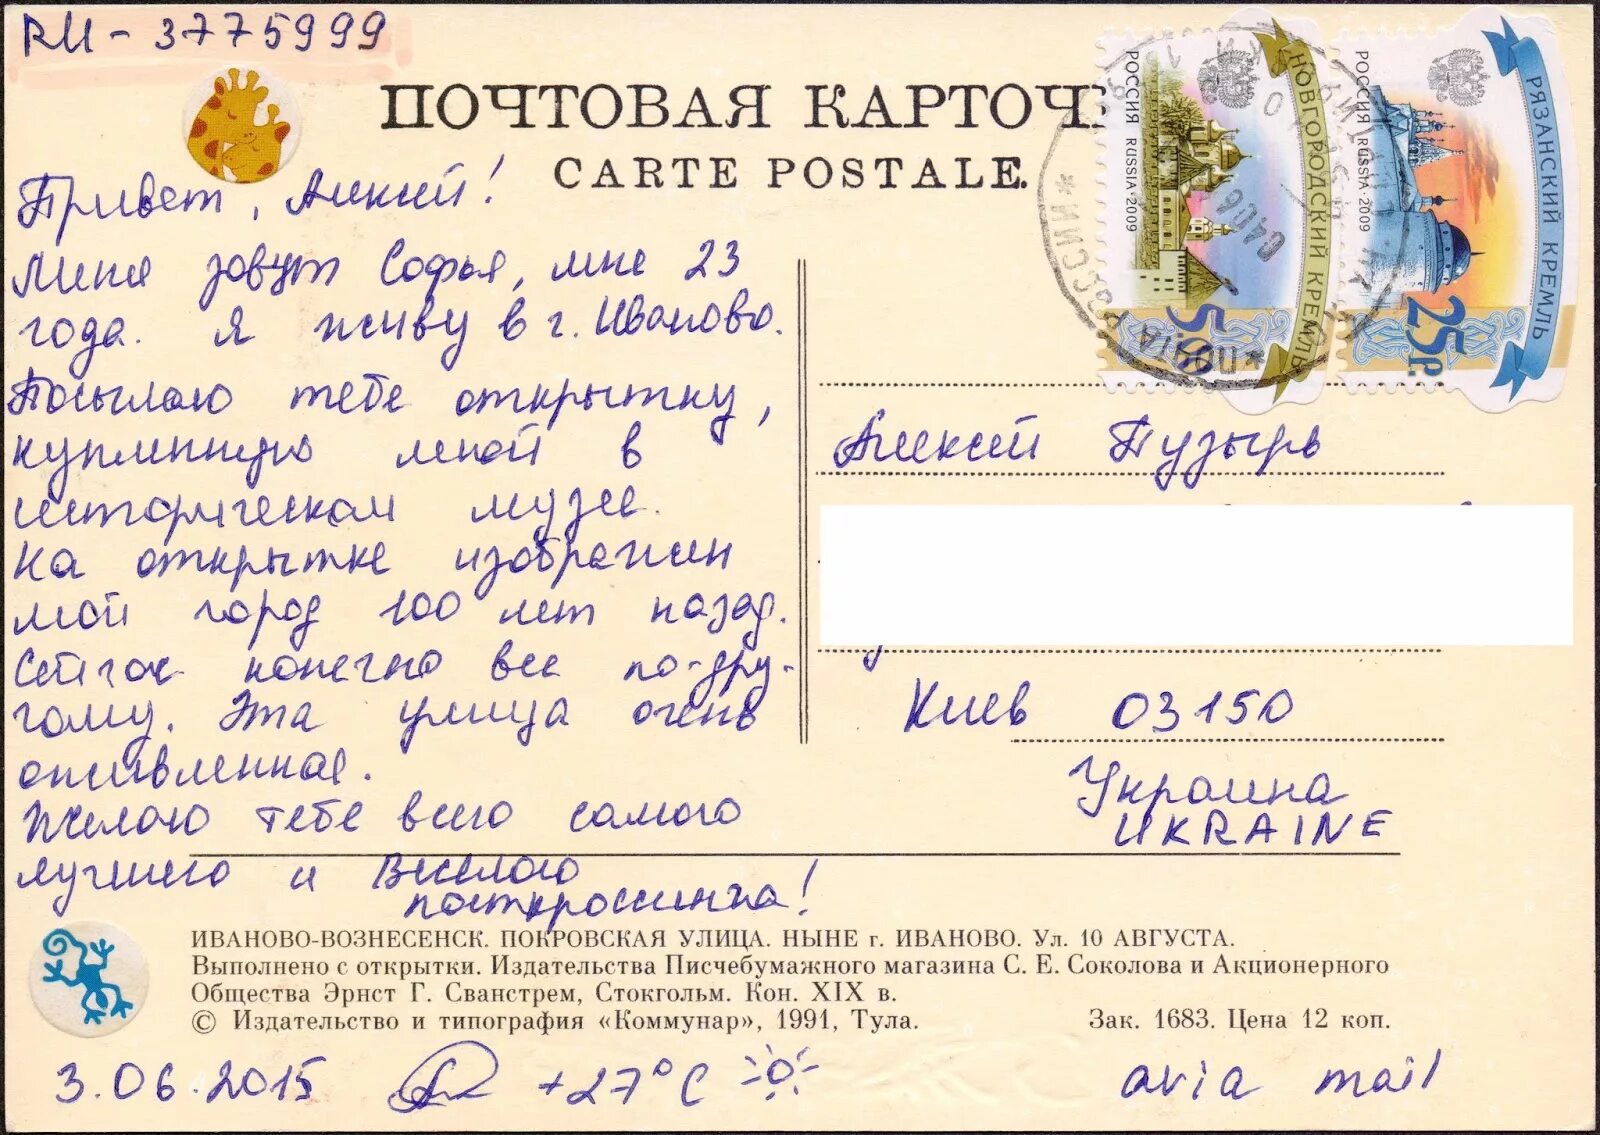 RU - 3775999
ПОЧТОВАЯ КАРТОЧ
CARTE POSTALE.
Привет, Алексей!
Меня зовут Софья, мне 23
года. Я живу в г. Иваново.
Посылаю тебе открытку,
купленную мной в
историческом музее.
На открытке изображен
мой город 100 лет назад.
Сейчас конечно все по-дру-
гому. Эта улица очень
оживленная.
Желаю тебе всего самого
лучшего и веселого
посткроссинга!
РОССИЯ RUSSIA · 2009
НОВГОРОДСКИЙ КРЕМЛЬ
РОССИЯ RUSSIA · 2009
РЯЗАНСКИЙ КРЕМЛЬ
25р.
*ПОЧТА РОССИИ*
Алексей Пузырь
Киев 03150
Украина
UKRAINE
ИВАНОВО-ВОЗНЕСЕНСК. ПОКРОВСКАЯ УЛИЦА. НЫНЕ г. ИВАНОВО. Ул. 10 АВГУСТА.
Выполнено с открытки. Издательства Писчебумажного магазина С. Е. Соколова и Акционерного
Общества Эрнст Г. Сванстрем, Стокгольм. Кон. XIX в.
© Издательство и типография «Коммунар», 1991, Тула. Зак. 1683. Цена 12 коп.
3.06.2015 +27°C avia mail